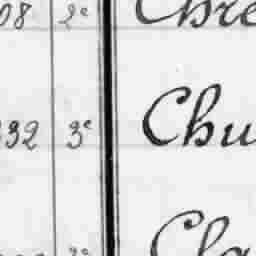 08 2e Chre
32 3e Chu
Cla